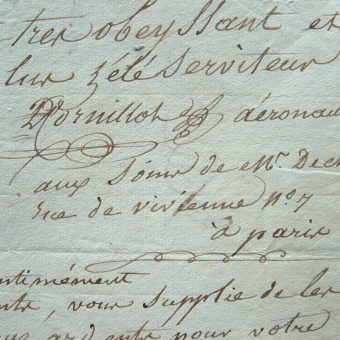 tres obeyssant et
lur zélé Serviteur
Dornillot aéronau
aux soins de Mr. Dec
rue de vivienne no 7
à paris
ntimément
ente, vous supplie de les
ardents pour votre